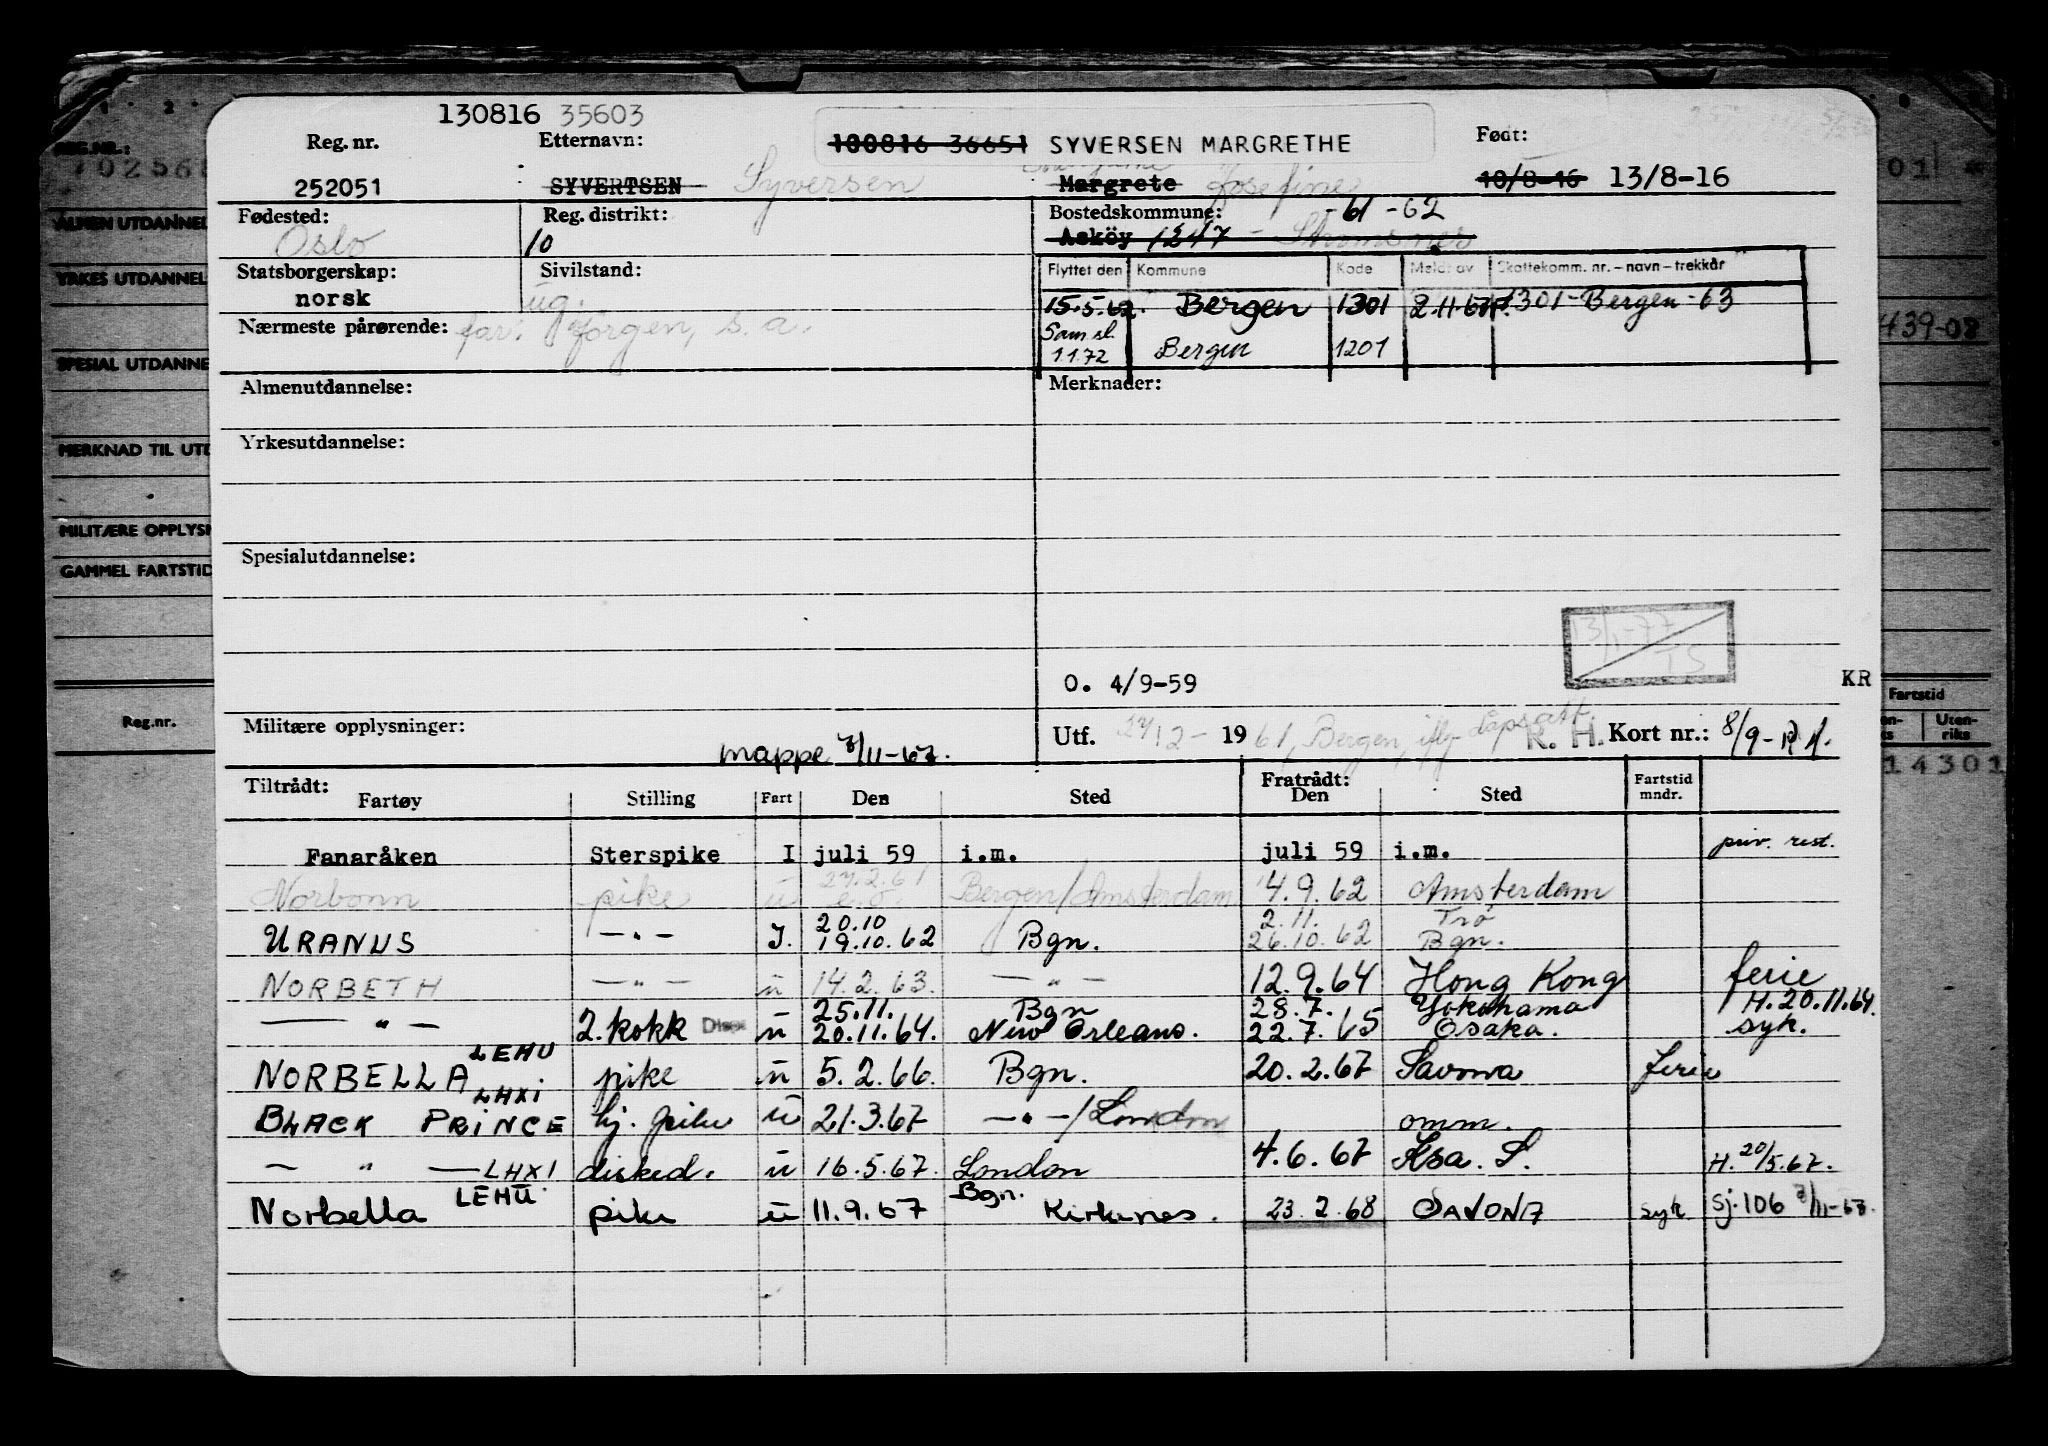 130816 35603
Reg. nr. Etternavn: 100816 36651 SYVERSEN MARGRETHE Født:
252051 SYVERTSEN Syversen Margrete Josefine 10/8-16 13/8-16
Fødested: Reg. distrikt: Bostedskommune: -61 -62
Oslo 10 Asköy 1247 - Strømsnes
Statsborgerskap: Sivilstand: Flyttet den Kommune Kode Meldt av Skattekomm. nr. - navn - trekkår
norsk ug. 15.5.62. Bergen 1301 2.11.67 1301-Bergen-63
Nærmeste pårørende: far: Jörgen, s.a. Sam.sl.
1172 Bergen 1201
Almenutdannelse: Merknader:
Yrkesutdannelse:
Spesialutdannelse:
13/1-77
TS
O. 4/9-59 KR
Militære opplysninger: mappe 7/11-67. Utf. 27/12- 1961, Bergen, R. H. Kort nr.: 8/9-
Tiltrådt: Fratrådt:
Fartøy Stilling Fart Den Sted Den Sted Fartstid mndr.
Fanaråken Sterspike I juli 59 i.m. juli 59 i.m. priv. rest.
27.2.61
Norbonn pike u Bergen/Amsterdam 4.9.62 Amsterdam
20.10 2.11. Trø
URANUS -"- I. 19.10.62 Bgn. 26.10.62 Bgn.
NORBETH -"- u 14.2.63. -"- 12.9.64 Hong Kong ferie
25.11. Bgn 28.7. Yokohama H. 20.11.64.
-"- 2. kokk u 20.11.64. New Orleans. 22.7.65 Osaka. syk.
LEHU
NORBELLA pike u 5.2.66. Bgn. 20.2.67 Savona ferie
LHXI
BLACK PRINCE hj. pike u 21.3.67 -"-/London omm.
-"- LHXI disked. u 16.5.67. London 4.6.67 Ksa. S. H. 20/5.67.
LEHU Bgn.
Norbella pike u 11.9.67 Kirkenes. 23.2.68 SAVONA syk sj. 106 7/11-67.
REG.NR.:
ALMEN UTDANNEL
YRKES UTDANNEL
SPESIAL UTDANNE
439-02
MERKNAD TIL UTD
MILITÆRE OPPLYSN
GAMMEL FARTSTID
Reg.nr.
Fartstid
Uten-
riks
14301